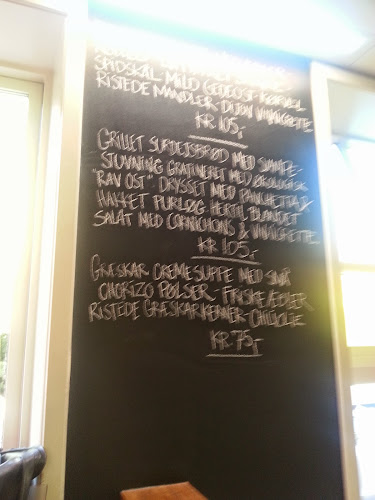 SPIDSKÅL MILD GEDEOST KØRVEL
RISTEDE MANDLER DIJON VINAIGRETTE
KR 105,-
GRILLET SURDEJSBRØD MED SVAMPE-
STUVNING GRATINERET MED ØKOLOGISK
"RAV OST". DRYSSET MED PANCHETTA &
HAKKET PURLØG. HERTIL BLANDET
SALAT MED CORNICHONS & VINAIGRETTE
KR 105,-
GRÆSKAR CREMESUPPE MED SMÅ
CHORIZO PØLSER - FRISKE ÆBLER
RISTEDE GRÆSKARKERNER - CHILIOLIE
KR 75,-